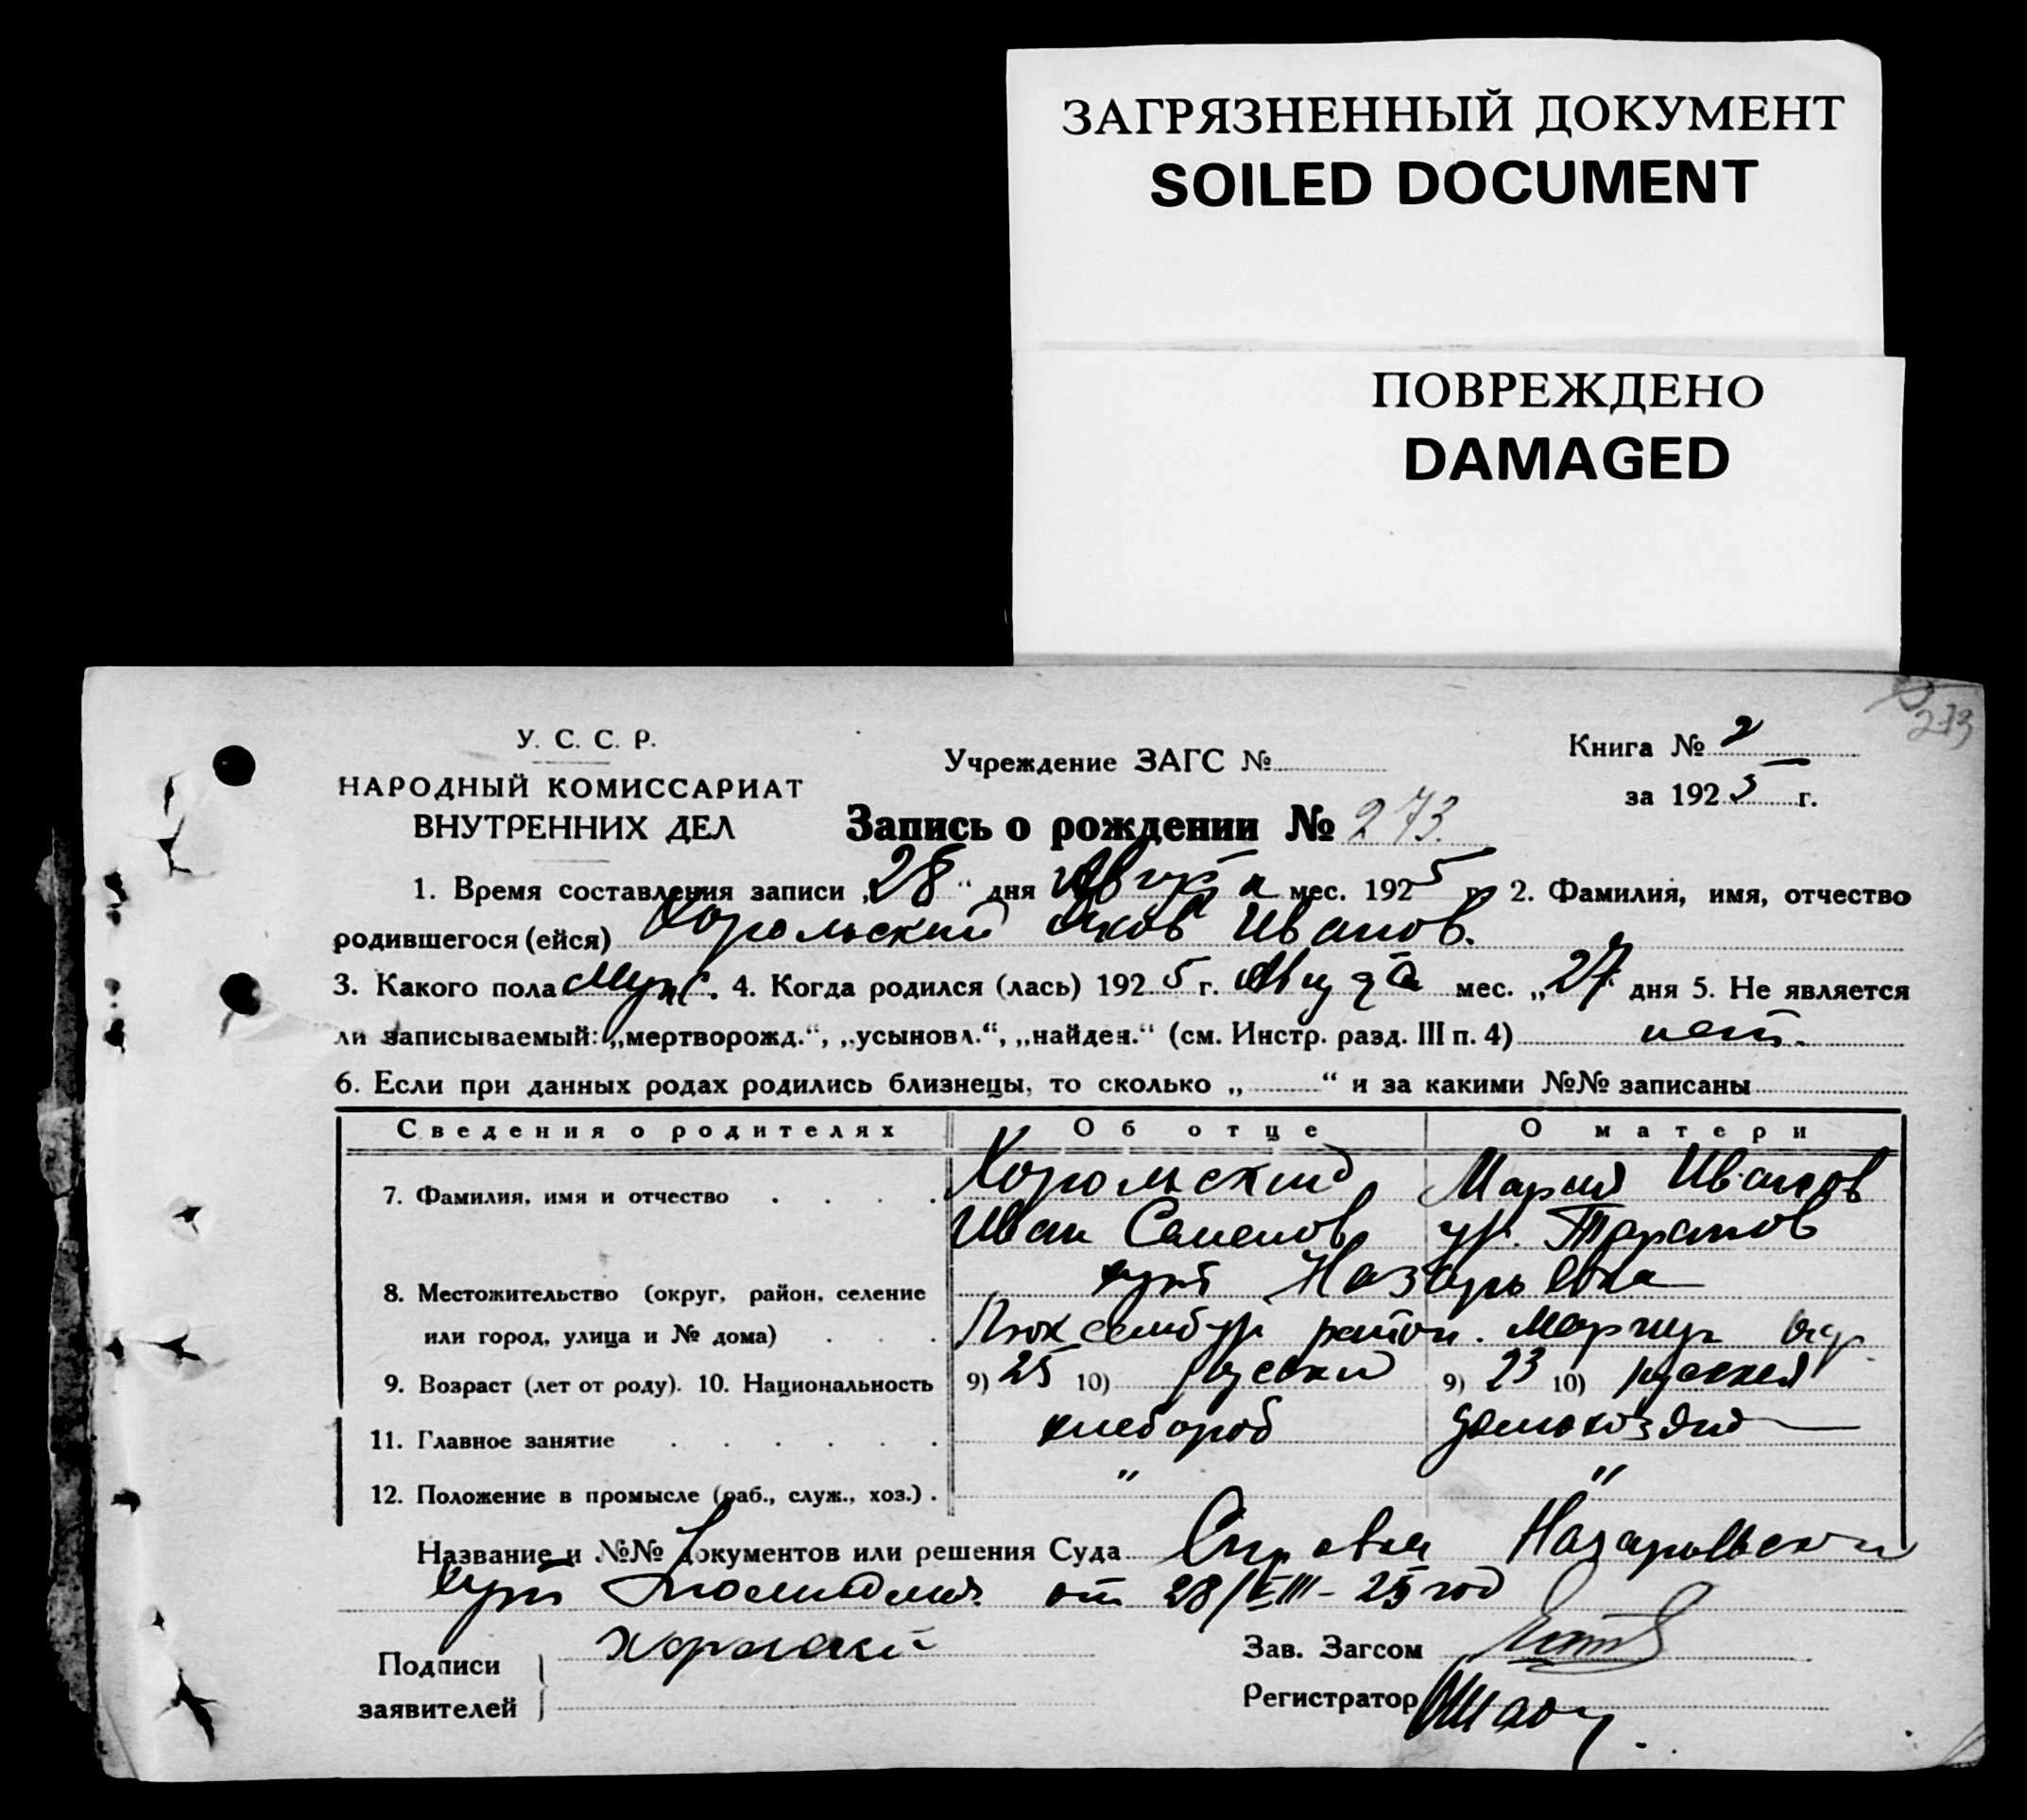 ЗАГРЯЗНЕННЫЙ ДОКУМЕНТ
SOILED DOCUMENT
ПОВРЕЖДЕНО
DAMAGED
273
У. С. С. Р.
НАРОДНЫЙ КОМИССАРИАТ
ВНУТРЕННИХ ДЕЛ
Учреждение ЗАГС №
Книга № 2
за 1925 г.
Запись о рождении № 273.
1. Время составления записи „28“ дня Августа мес. 1925 г. 2. Фамилия, имя, отчество
родившегося (ейся) Хорольский Яков Иванов.
3. Какого пола Муж. 4. Когда родился (лась) 1925 г. Августа мес. „27“ дня 5. Не является
ли записываемый: „мертворожд.“, „усыновл.“, „найден.“ (см. Инстр. разд. III п. 4) нет.
6. Если при данных родах родились близнецы, то сколько „ “ и за какими №№ записаны
Сведения о родителях Об отце О матери
7. Фамилия, имя и отчество Хорольский Мария Иванов
Иван Семенов ур. Таранов
8. Местожительство (округ, район, селение хут Назарьевка
или город, улица и № дома) Люксембург район. Мариуп окр.
9. Возраст (лет от роду). 10. Национальность 9) 25 10) русский 9) 23 10) русская
11. Главное занятие хлебороб домохозяй
12. Положение в промысле (раб., служ., хоз.) " "
Название и №№ документов или решения Суда Справка Назарьевский
хут от 28/VIII-25 год
Подписи
заявителей
Зав. Загсом
Регистратор